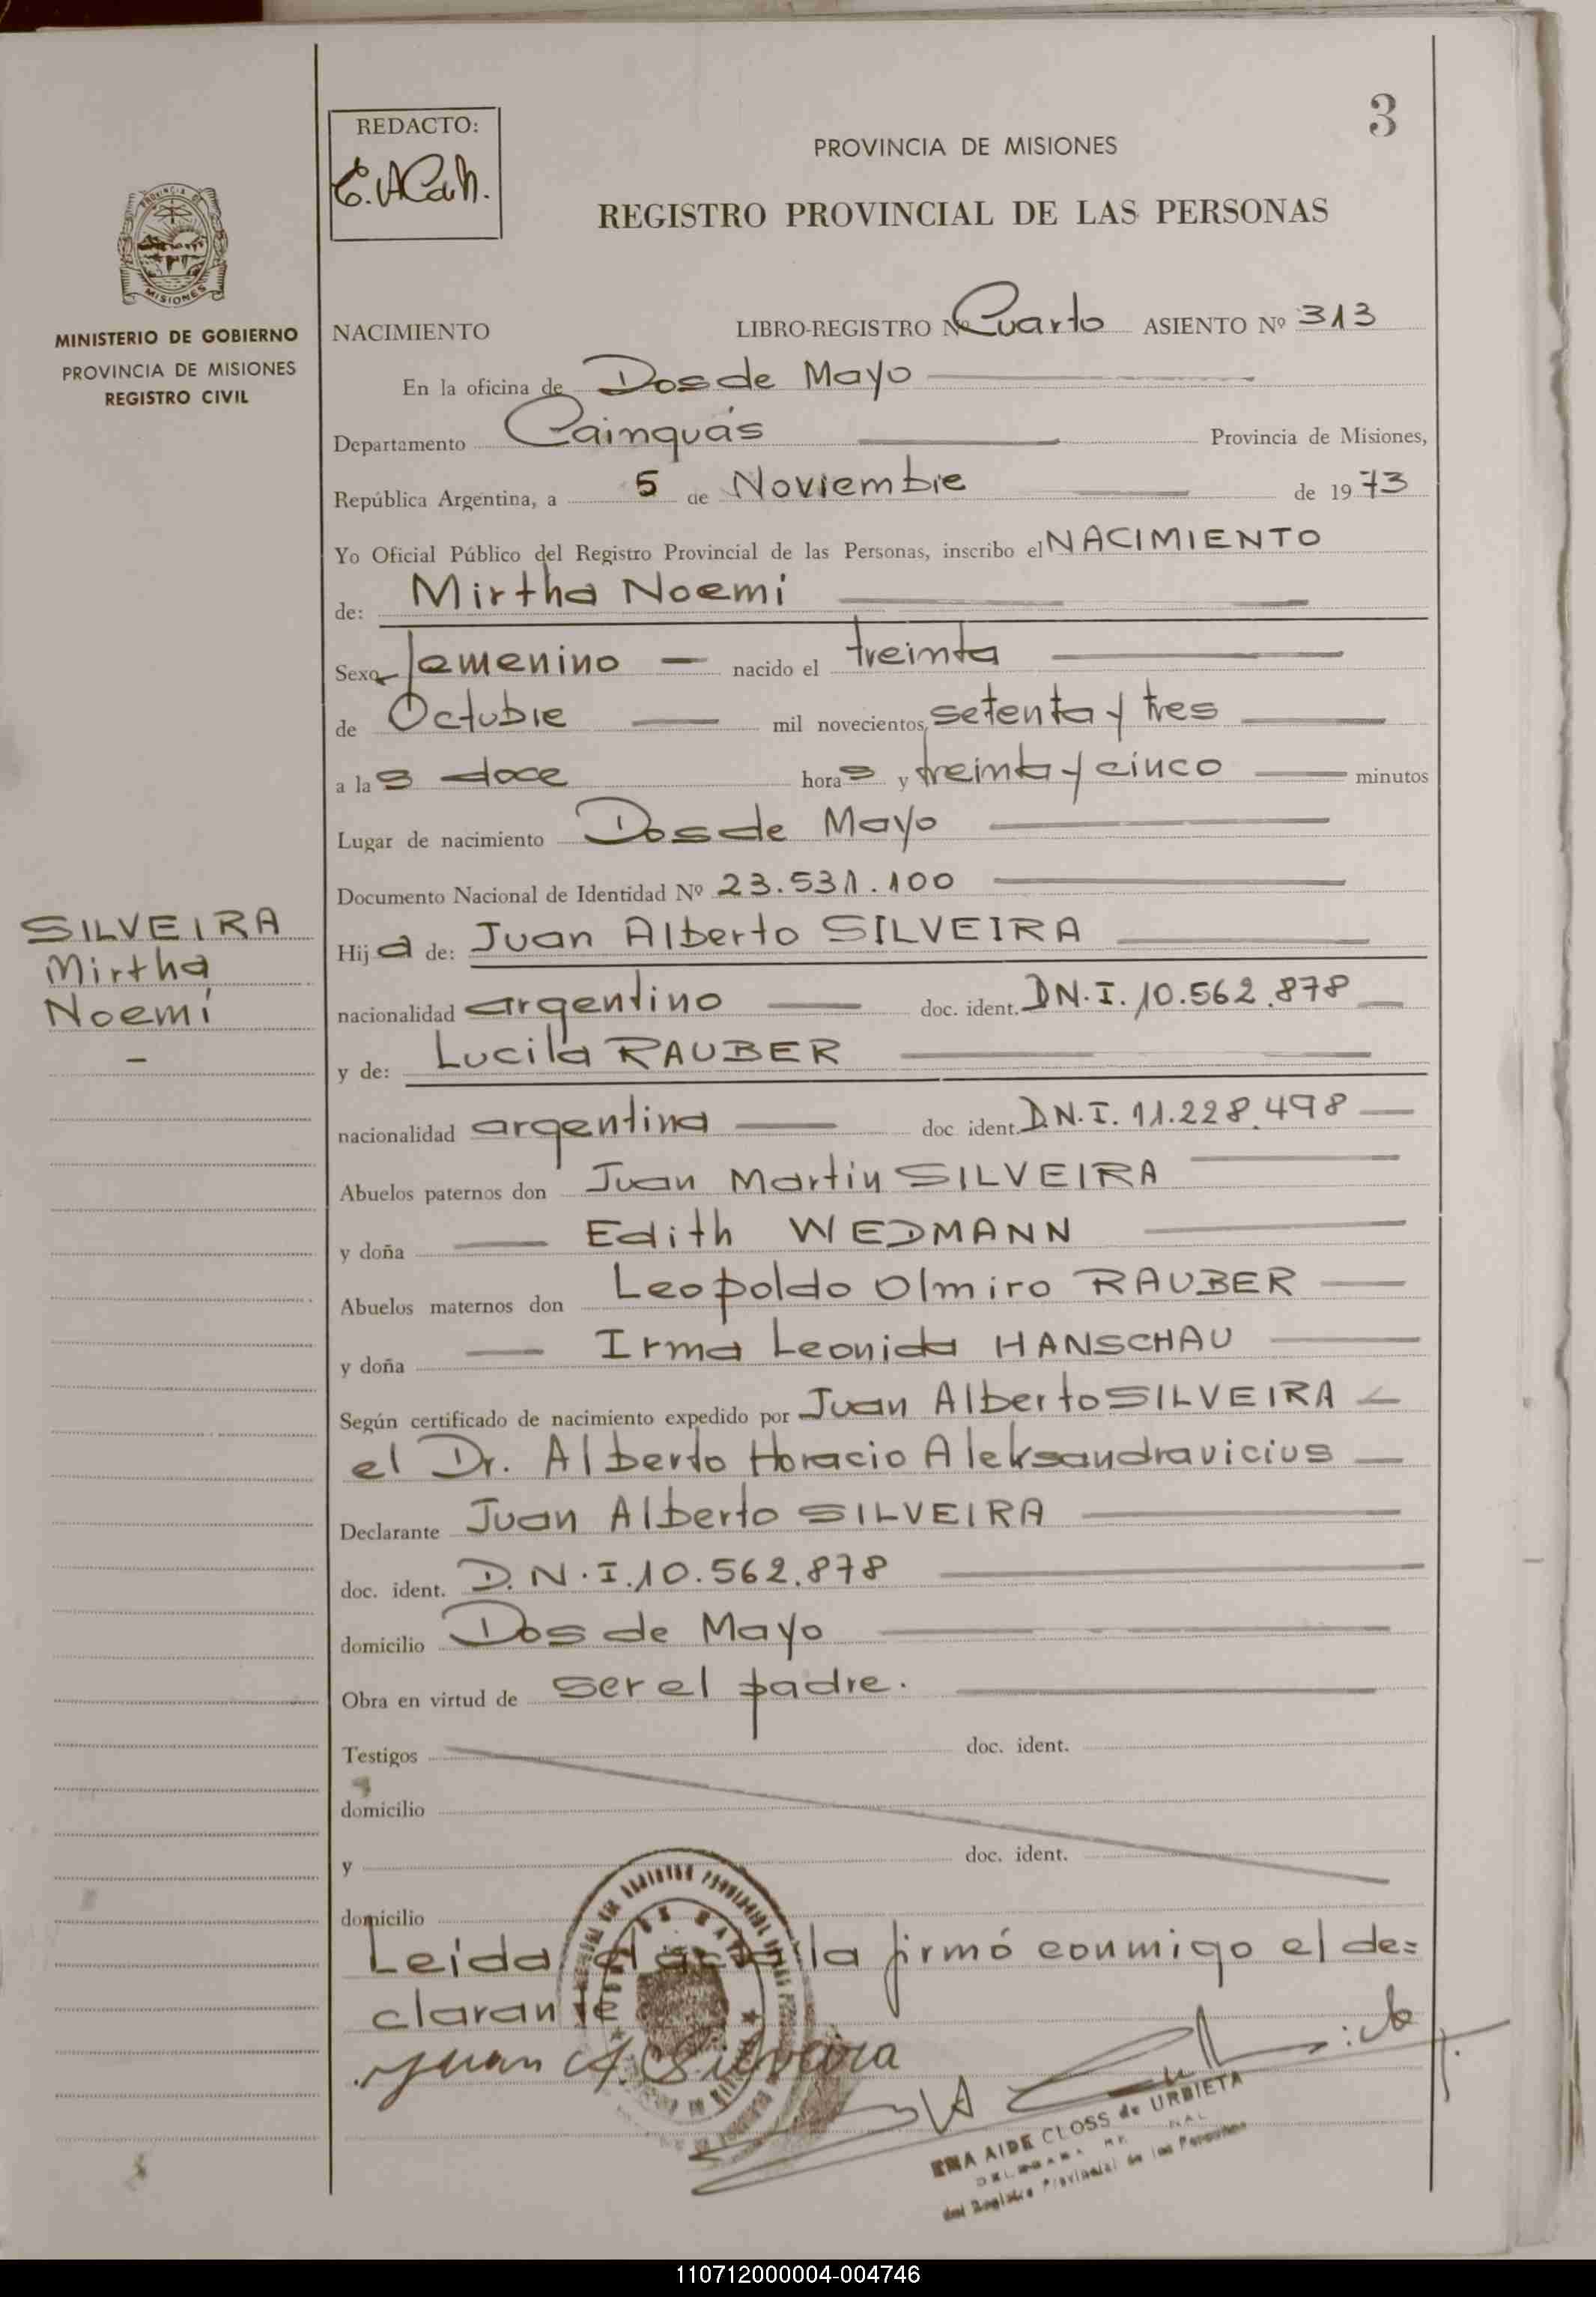 3
REDACTO:
PROVINCIA DE MISIONES
REGISTRO PROVINCIAL DE LAS PERSONAS
MISIONES
MINISTERIO DE GOBIERNO
PROVINCIA DE MISIONES
REGISTRO CIVIL
NACIMIENTO LIBRO-REGISTRO Nº Cuarto ASIENTO Nº 313
En la oficina de Dos de Mayo
Departamento Cainguás Provincia de Misiones,
República Argentina, a 5 de Noviembre de 1973
Yo Oficial Público del Registro Provincial de las Personas, inscribo el NACIMIENTO
de: Mirtha Noemí
Sexo femenino — nacido el treinta
de Octubre mil novecientos setenta y tres
a las doce horas y treinta y cinco minutos
Lugar de nacimiento Dos de Mayo
Documento Nacional de Identidad Nº 23.531.100
SILVEIRA
Mirtha
Noemí
Hija de: Juan Alberto SILVEIRA
nacionalidad argentino doc. ident. D.N.I. 10.562.878
y de: Lucila RAUBER
nacionalidad argentina doc. ident. D.N.I. 11.228.498
Abuelos paternos don Juan Martin SILVEIRA
y doña Edith WEDMANN
Abuelos maternos don Leopoldo Olmiro RAUBER
y doña Irma Leonida HANSCHAU
Según certificado de nacimiento expedido por Juan Alberto SILVEIRA
el Dr. Alberto Horacio Aleksandravicius
Declarante Juan Alberto SILVEIRA
doc. ident. D.N.I. 10.562.878
domicilio Dos de Mayo
Obra en virtud de ser el padre.
Testigos doc. ident.
domicilio
y doc. ident.
domicilio
Leida el acta la firmó conmigo el de=
clarante
Juan A. Silveira
ENA AIDE CLOSS de URBIETA
del Registro Provincial de las Personas
110712000004-004746